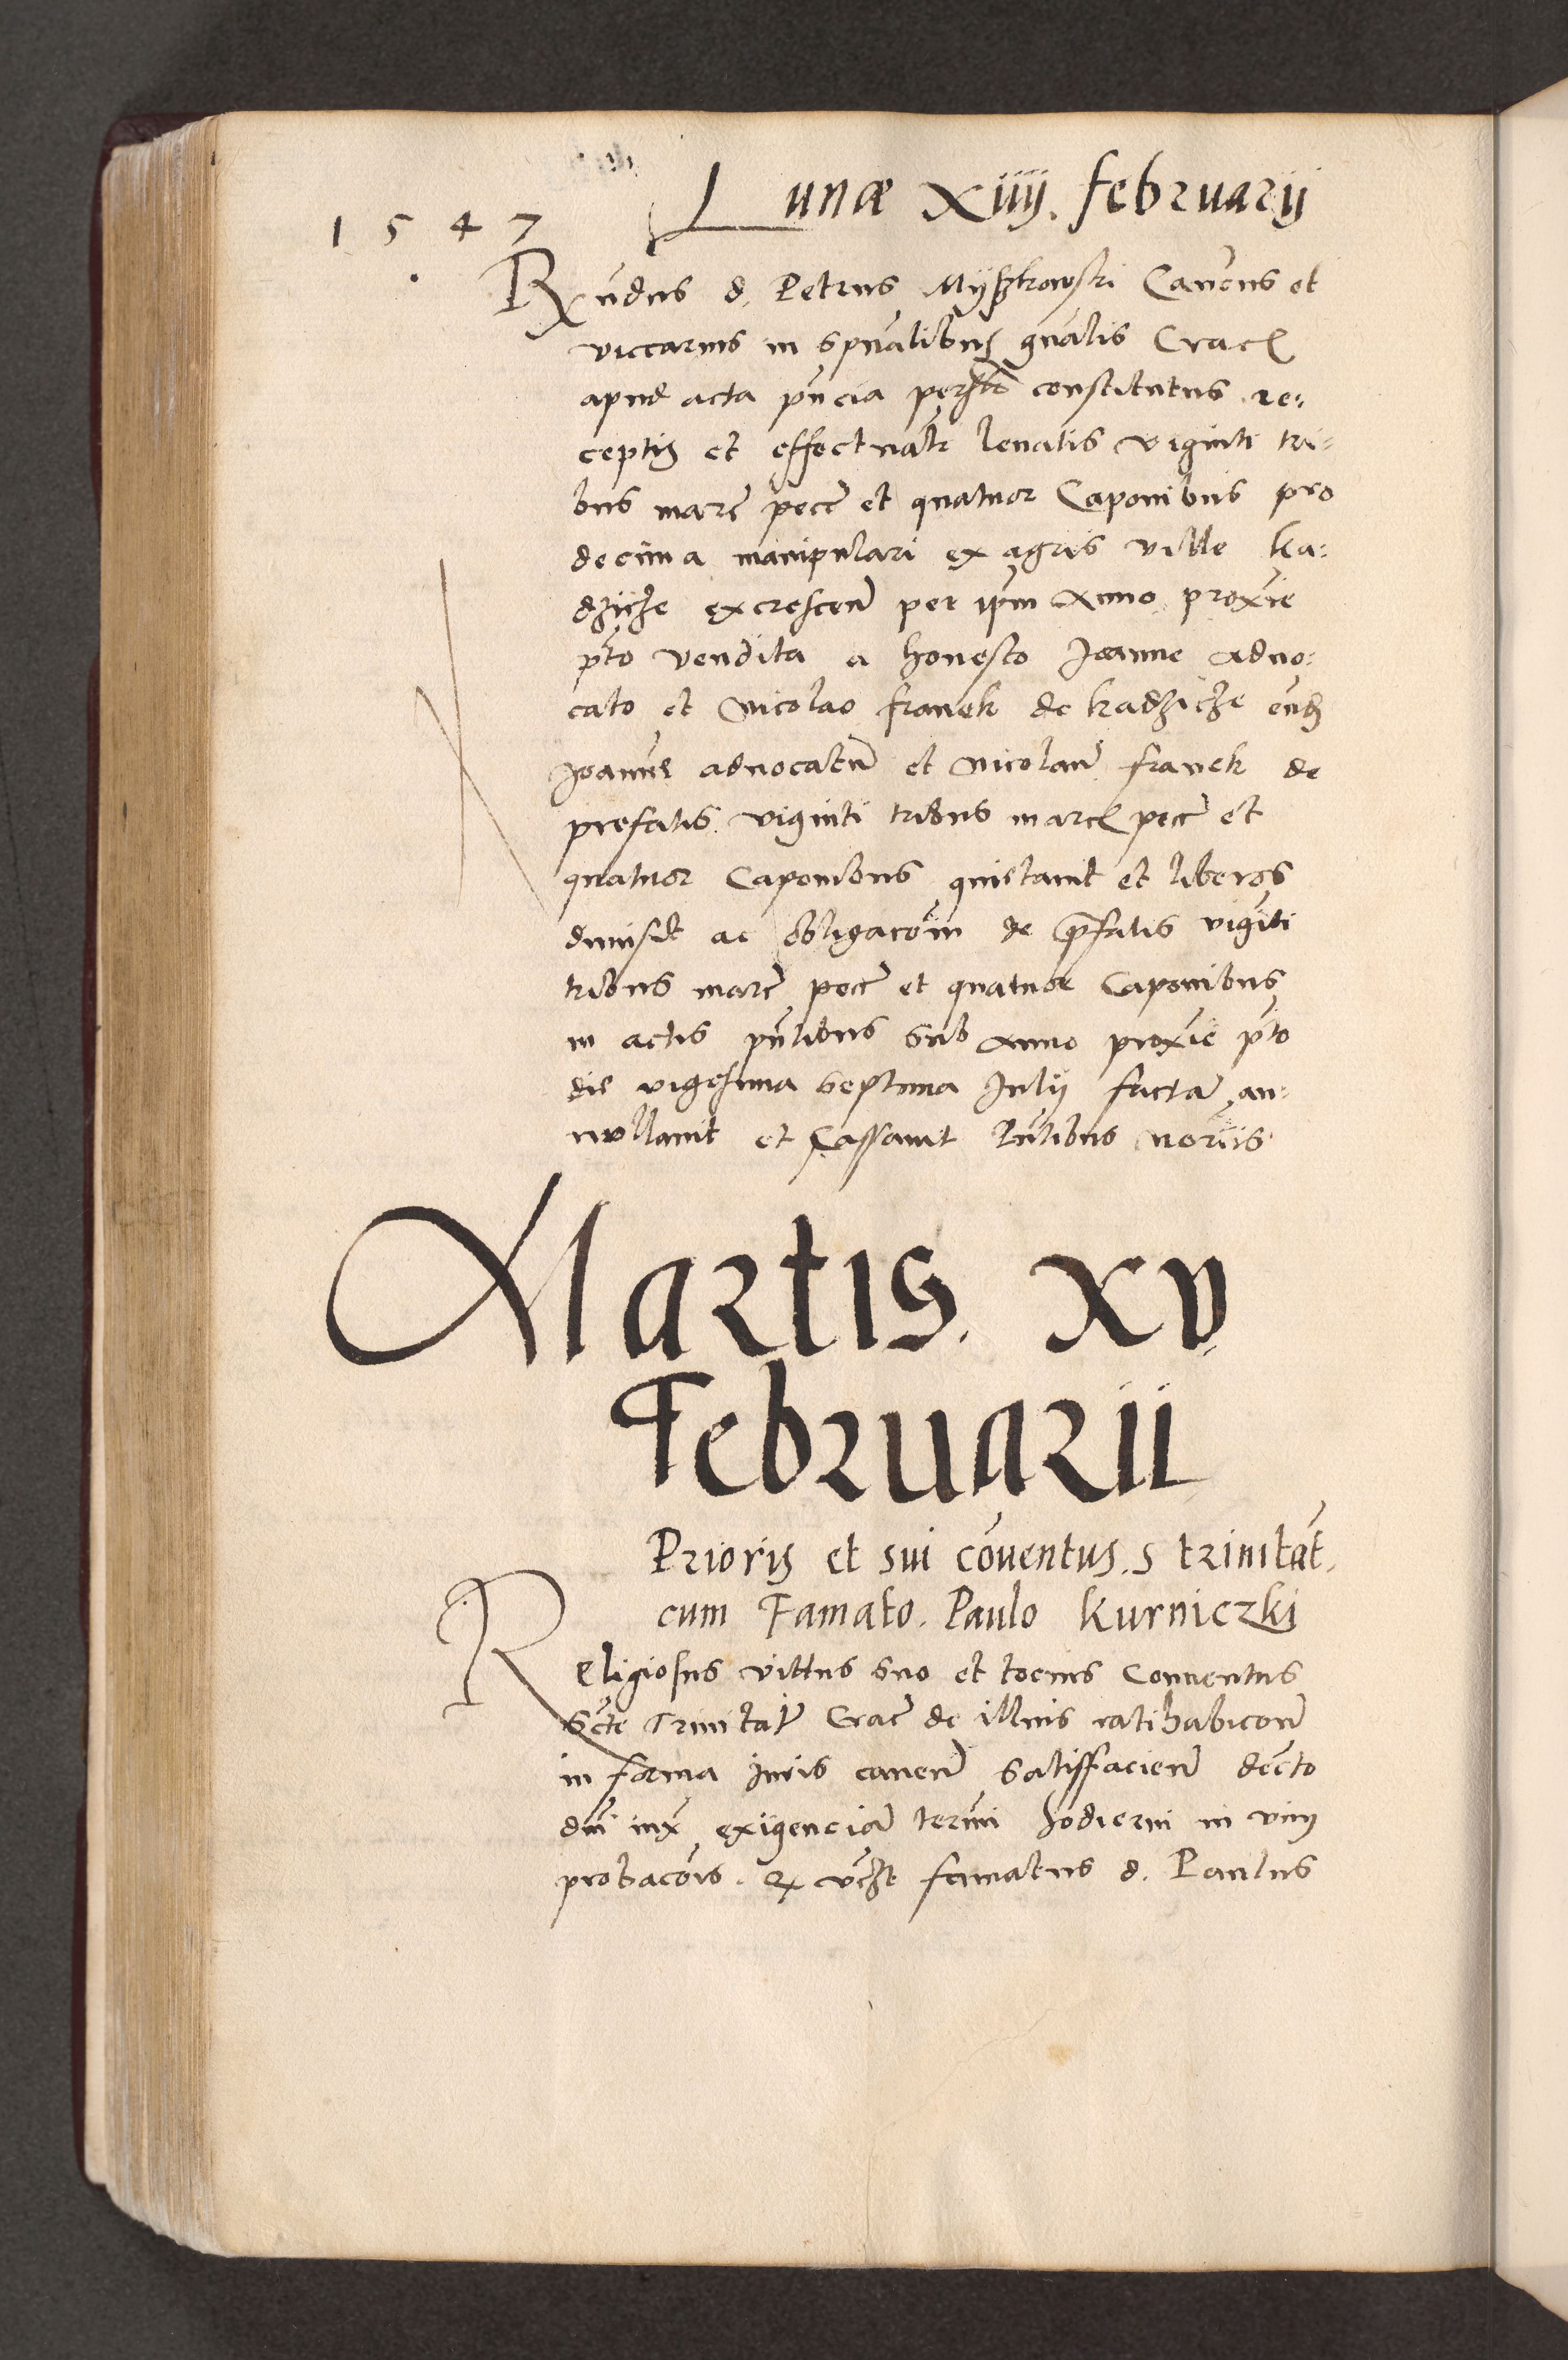 Lunæ Xiiij. februarij
1547
Rx̃ndus d. Petrus Mysskowski Canõcus et
viccarius in spũalibus gñalis Crac̃
apud acta pñcia persõl constitutus re:
ceptis et effectualr̃ levatis viginti tri:
bus marc̃ pecc̃ et quatuor Caponibus pro
decima manipulari ex agris ville Ka:
dziche excrescen̄ per ip̃m Anno proxĩe
p̃to vendita a honesto Joanne Advo:
cato et Nicolao franek de Kadziche eũd
Joannẽ advocatũ et Nicolaũ franek de
prefatis viginti tribus marc̃ pecc̃ et
quatuor Caponibus quietavit et liberos
dimisit ac obligacõm de p̃fatis vigĩti
tribus marc̃ pecc̃ et quatuor Caponibus
in actis pñtibus sub Anno proxĩe p̃to
die vigesima septima Julij factã an:
nullavit et Cassavit Pñtibus Norĩis
Martis. XV
Februarii
Prioris et sui cõuentus. s trinitat̃.
cum Famato. Paulo Kurniczki
Religiosus vittus suo et tocius Conventus
Scte Trinitat̃ Crac̃ de illius ratihabicõn̄
in forma Juris caven̄ satisffacien̄ decto
dñi iux̃ exigenciã term̃i hodierni in vim
probacõis. Ex
famatus d. Paulus